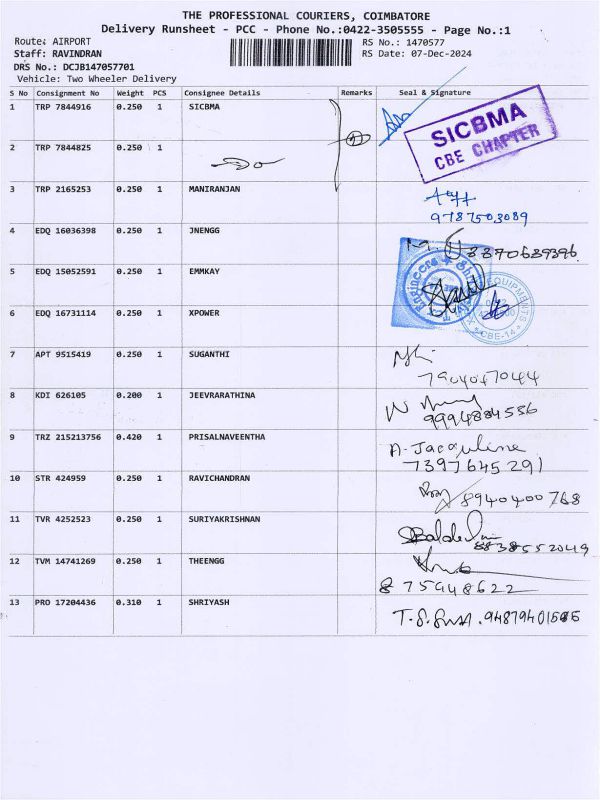 THE PROFESSIONAL COURIERS, COIMBATORE
Delivery Runsheet - PCC - Phone No.:0422-3505555 - Page No.:1
Route: AIRPORT RS No.: 1470577
Staff: RAVINDRAN RS Date: 07-Dec-2024
DRS No.: DCJB147057701
Vehicle: Two Wheeler Delivery
S No Consignment No Weight PCS Consignee Details Remarks Seal & Signature
1 TRP 7844916 0.250 1 SICBMA
SICBMA
CBE CHAPTER
2 TRP 7844825 0.250 1 Do
3 TRP 2165253 0.250 1 MANIRANJAN
9787503089
4 EDQ 16036398 0.250 1 JNENGG 8870689396
5 EDQ 15052591 0.250 1 EMMKAY
6 EDQ 16731114 0.250 1 XPOWER
CBE-14
7 APT 9515419 0.250 1 SUGANTHI
7904047044
8 KDI 626105 0.200 1 JEEVRARATHINA
9994884556
9 TRZ 215213756 0.420 1 PRISALNAVEENTHA A. Jacquline
7397645291
10 STR 424959 0.250 1 RAVICHANDRAN 8940400768
11 TVR 4252523 0.250 1 SURIYAKRISHNAN
8838552049
12 TVM 14741269 0.250 1 THEENGG
875948622
13 PRO 17204436 0.310 1 SHRIYASH